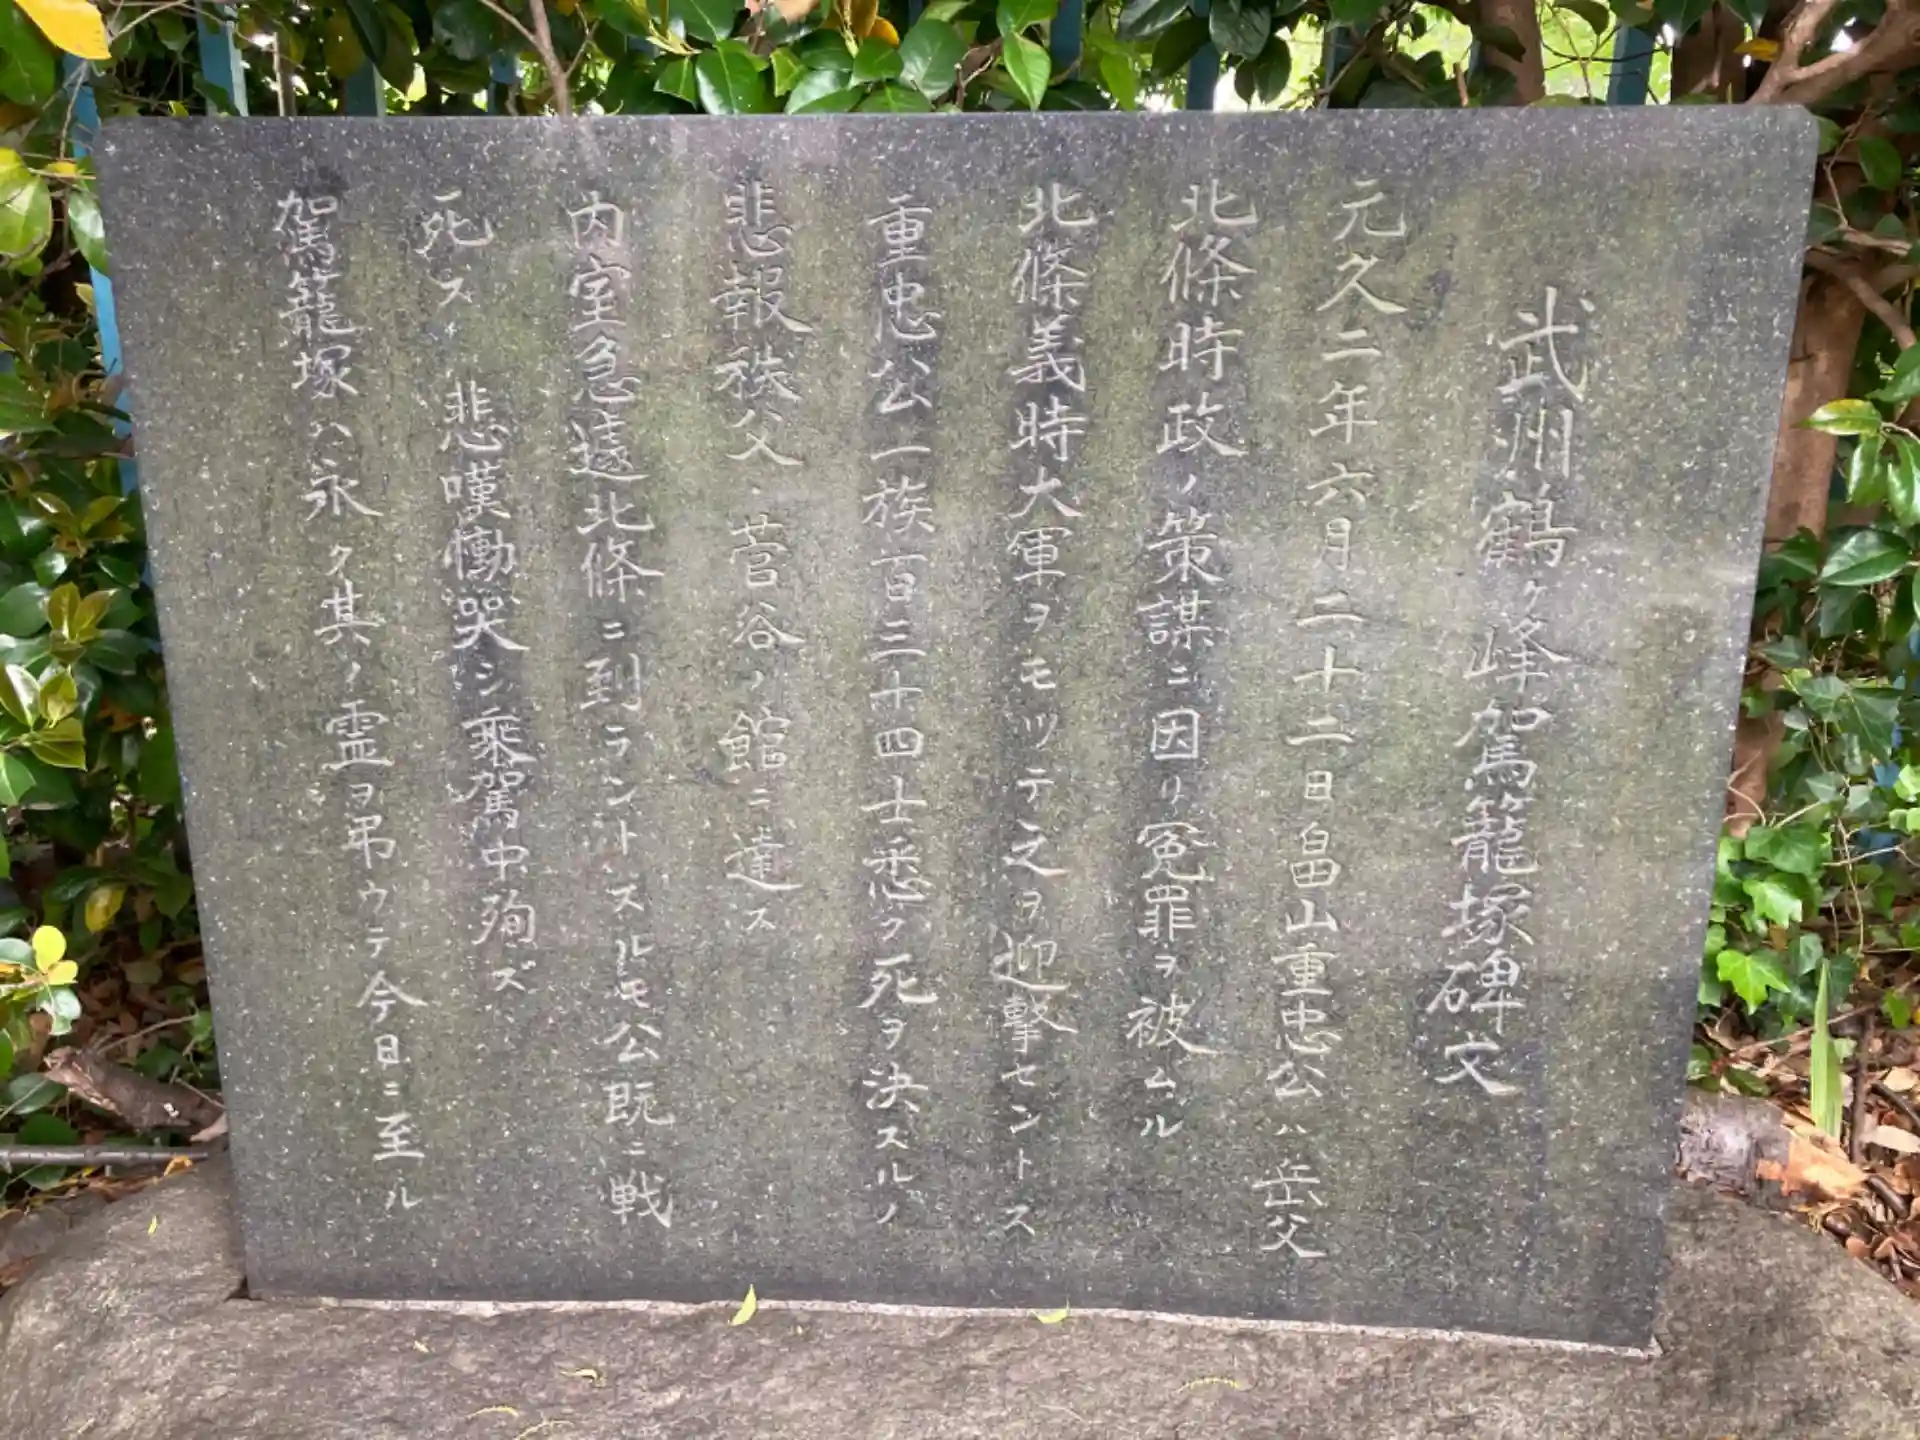 武州鶴ケ峰駕籠塚碑文
元久二年六月二十二日畠山重忠公ハ岳父
北條時政ノ策謀ニ因リ冤罪ヲ被ムル
北條義時大軍ヲモツテ之ヲ迎撃セントス
重忠公一族百三十四士悉ク死ヲ決スルノ
悲報秩父・菅谷ノ館ニ達ス
内室急遽北條ニ到ラントスルモ公既ニ戦
死ス 悲嘆慟哭シ乗駕中殉ズ
駕籠塚ハ永ク其ノ霊ヲ弔ウテ今日ニ至ル